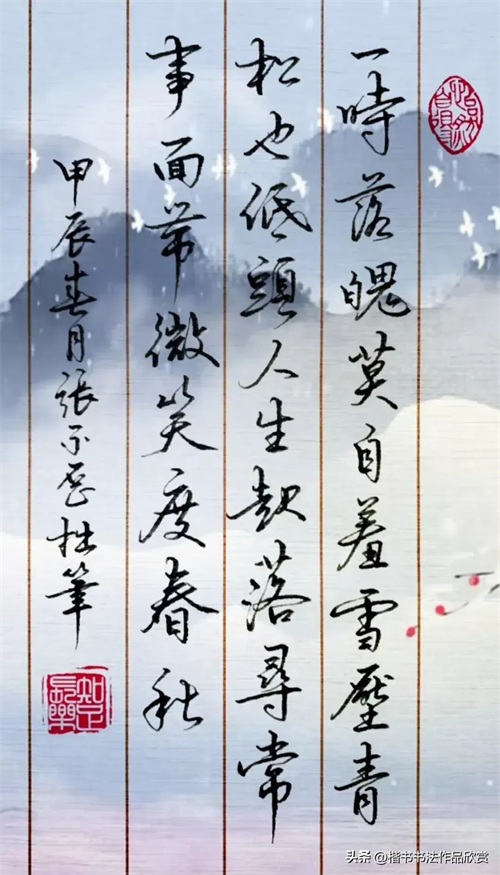 一時落魄莫自羞雪壓青
松也低頭人生起落尋常
事面帶微笑度春秋
甲辰春月張不拙筆
知足長樂
头条 @楷书书法作品欣赏